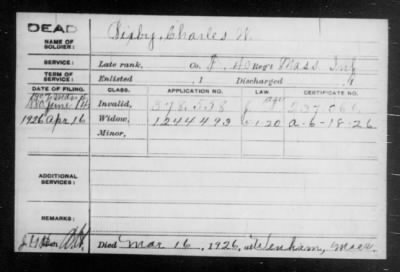 DEAD
NAME OF SOLDIER: Bixby, Charles W.
SERVICE: Late rank, Co. F, Reg't Mass Inf
TERM OF SERVICE: Enlisted , 1 Discharged , 1
DATE OF FILING. CLASS. APPLICATION NO. LAW. CERTIFICATE NO.
Invalid, 378.558
1926 Apr. 16 Widow, 1244493 5-1-20 A-6-18-26.
Minor,
ADDITIONAL SERVICES:
REMARKS:
Died Mar 16, 1926, at Wenham, Mass.